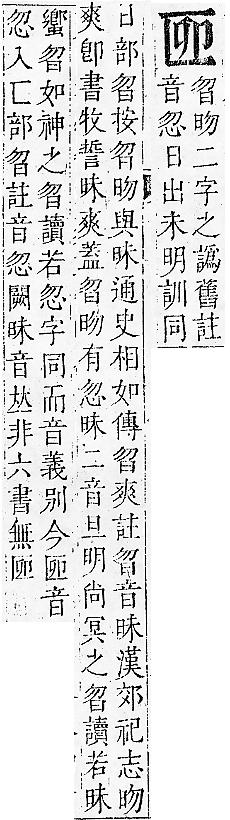 曶昒二字之譌舊註
音忽日出未明訓同
日部曶按曶昒與昧通史相如傳曶爽註曶音昧漢郊祀志昒
爽卽書牧誓昧爽蓋曶昒有忽昧二音旦明尚冥之曶讀若昧
蠁曶如神之曶讀若忽字同而音義別今音
忽入匚部曶註音忽闕昧音𠀤非六書無